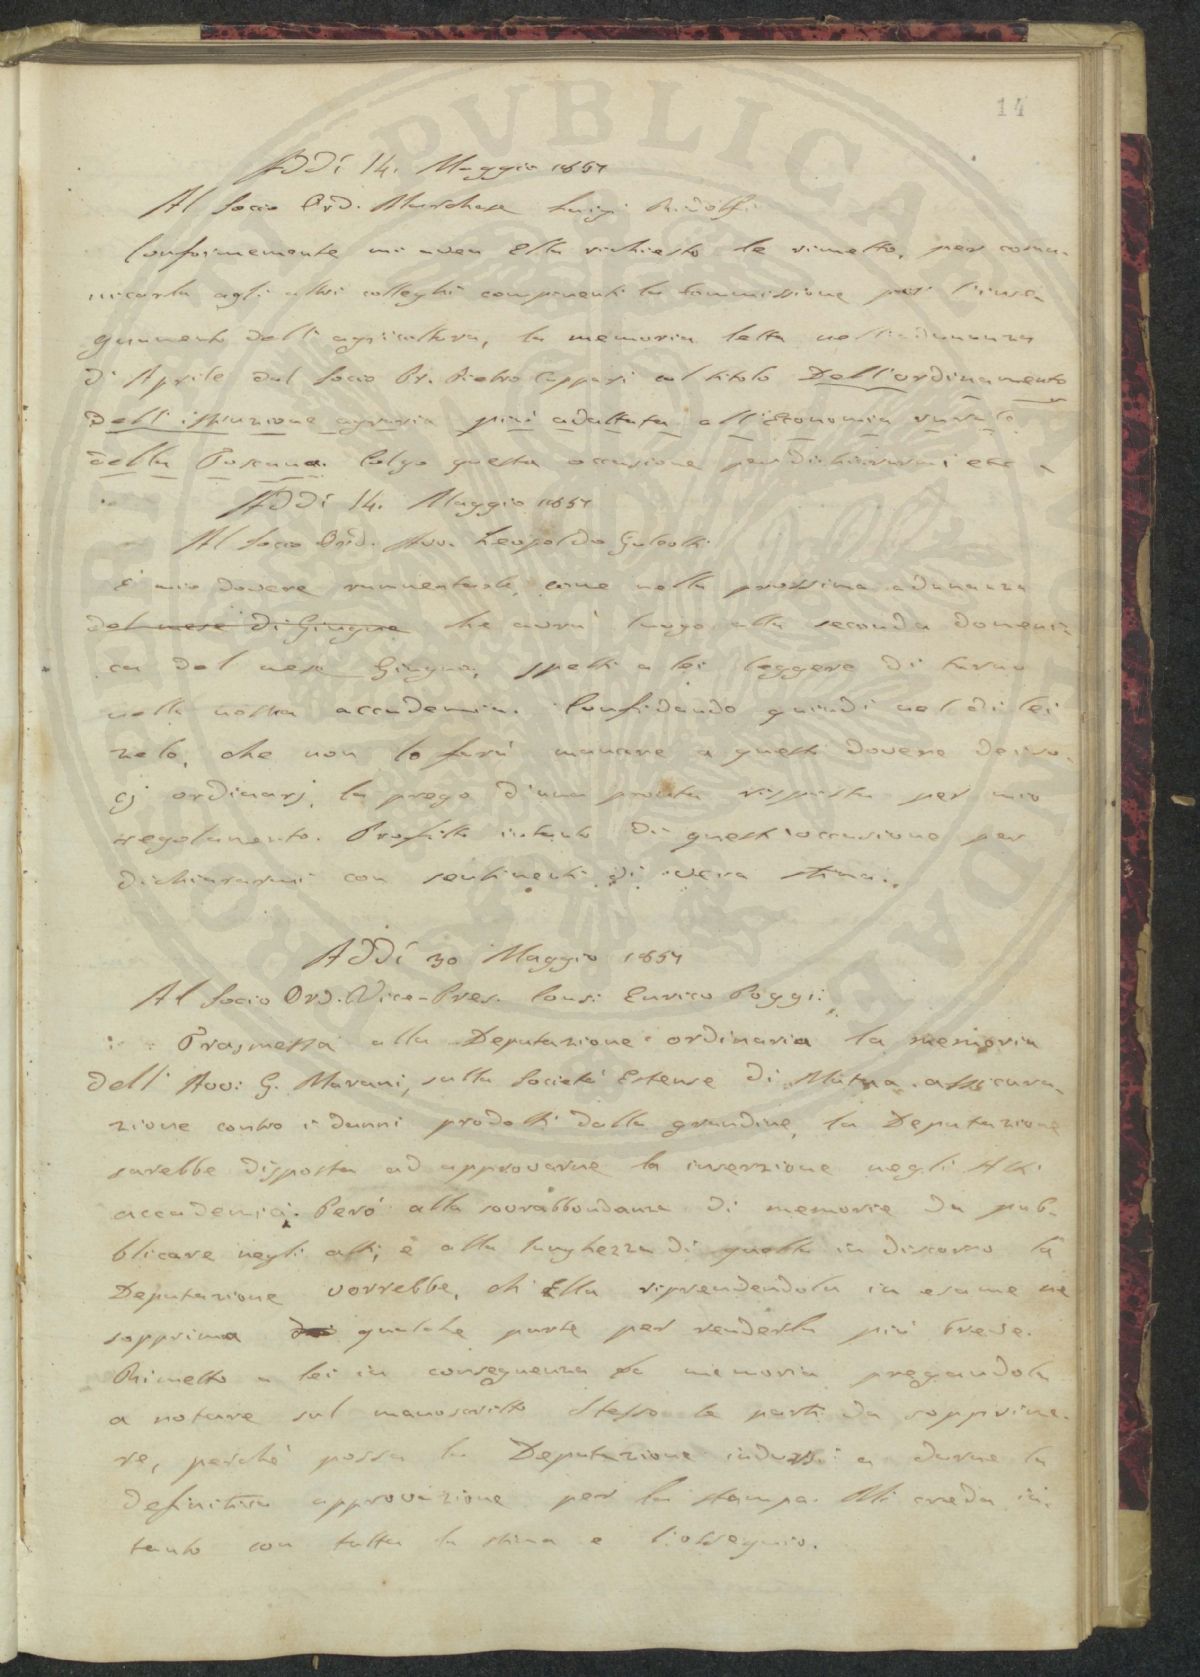 14
Addí 14. Maggio 1857
Al Socio Ord. Marchese Luigi Ridolfi
Conformemente mi avea Ella richiesto le rimetto, per comu-
nicarla agli altri colleghi componenti la Commissione per l'inse-
gnamento dell'agricoltura, la memoria letta nell'adunanza
di Aprile dal Socio Pietro Cuppari col titolo Dell'ordinamento
dell'istruzione agraria più adattata all'Economia rurale
della Toscana. Colgo questa occasione per dichiararmi etc
Addí 14. Maggio 1857
Al Socio Ord. Avv. Leopoldo Galeotti
È mio dovere rammentarle, come nella prossima adunanza
del mese di Giugno che avrà luogo alla seconda domeni-
ca del mese Giugno, spetti a lei leggere di turno
nella nostra accademia. Confidando quindi nel di lei
zelo, che non lo farà mancare a questi dovere dei so-
cj ordinarj, la prego d'una pronta risposta per mio
regolamento. Profitto intanto di quest'occasione per
dichiararmi con sentimenti di vera stima.
Addí 30 Maggio 1857
Al Socio Ord. Vice-Pres. Cons: Enrico Poggi:
Trasmessa alla Deputazione ordinaria la memoria
dell'Avv: G. Marani, sulla Società Estense di Mutua assicura-
zione contro i danni prodotti dalla grandine, la Deputazione
sarebbe disposta ad approvarne la inserzione negli Atti
accademici. Però alla sovrabbondanza di memorie da pub-
blicare negli atti, e alla lunghezza di quella in discorso la
Deputazione vorrebbe, ch'Ella riprendendola in esame ne
sopprima qualche parte per renderla più breve.
Rimetto a lei in conseguenza la memoria pregandola
a notare sul manoscritto stesso le parti da sopprime-
re, perchè possa la Deputazione indursi a darne la
definitiva approvazione per la stampa. Mi creda in-
tanto con tutta la stima e l'ossequio.